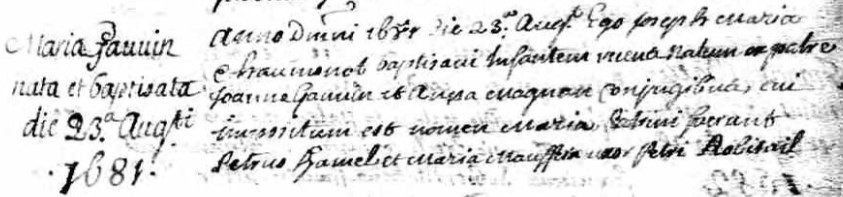 Maria Gauvin
nata et baptisata
die 23.a Aug.ti
.1681.
Anno Dmni 1681 die 23.a Aug.ti Ego Joseph Maria
Chaumonot baptisavi Infantem recens Natum ex patre
Joanne Gauvin et Anna Magnan Conjugibus, cui
impositum est nomen Maria, Patrini fuerunt
Petrus hamel et Maria uxor Petri Robitail